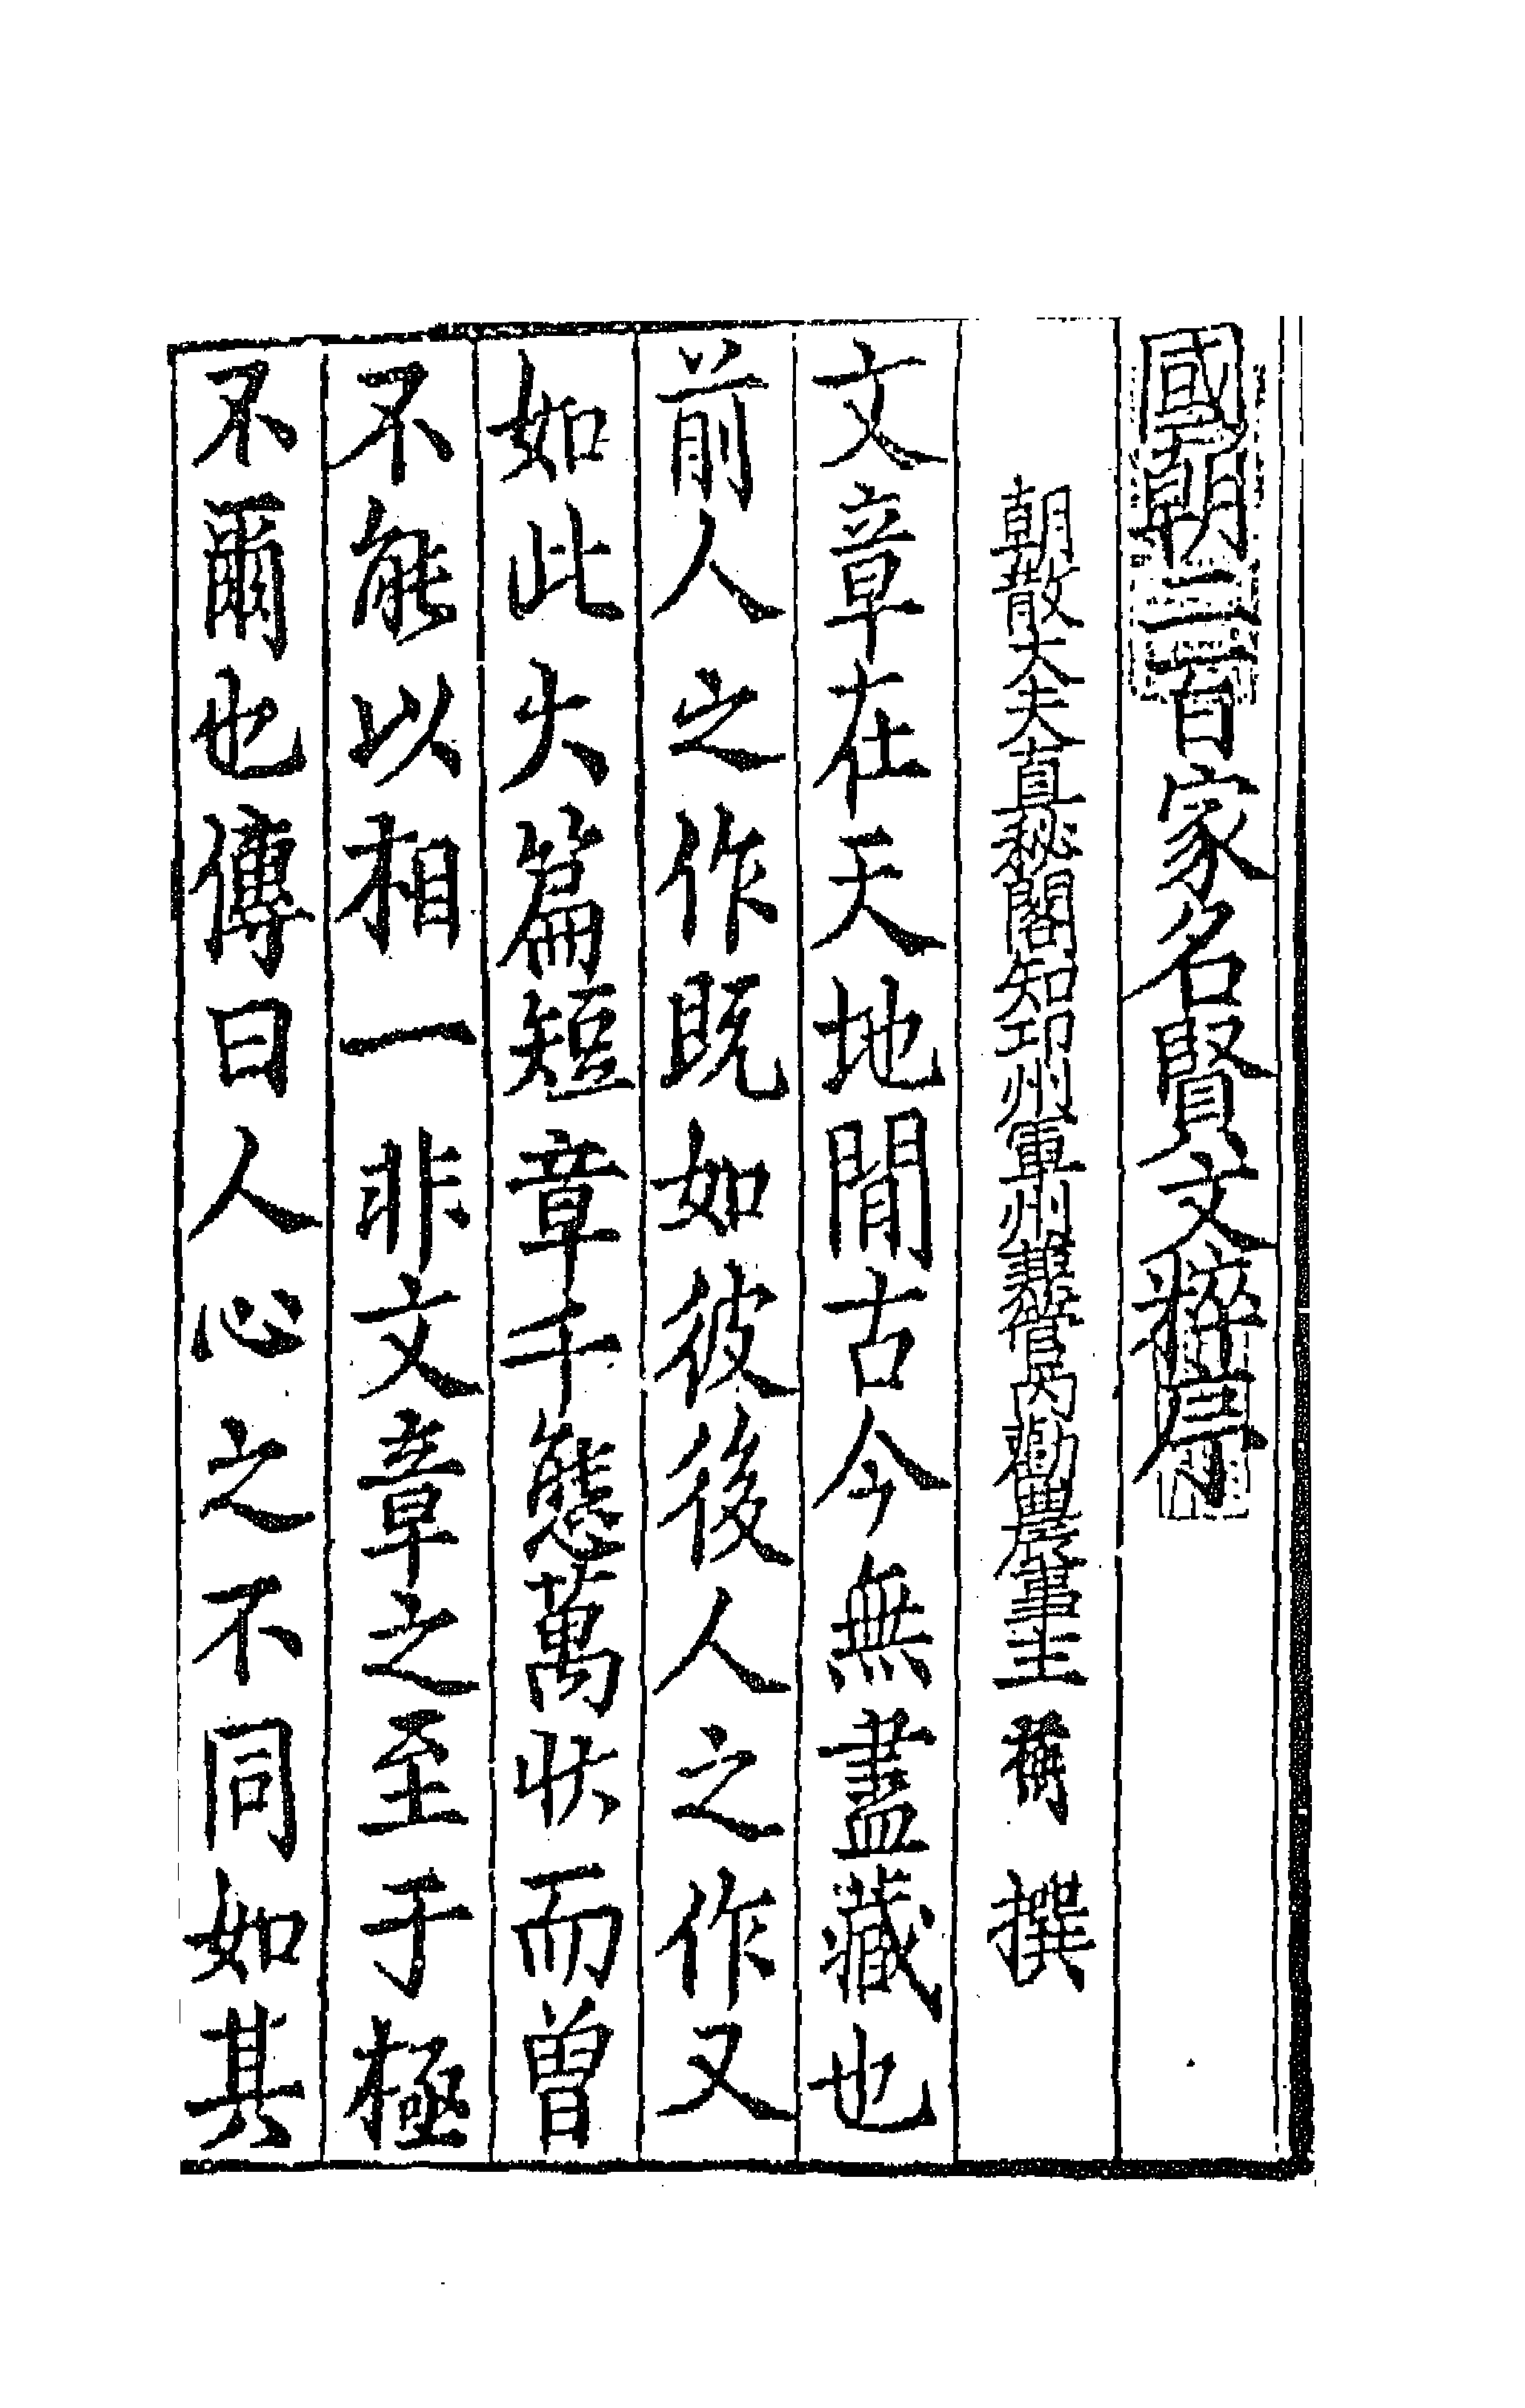 國朝二百家名賢文粹序
朝散大夫直秘閣知邛州軍州兼管內勸農事王稱撰
文章在天地間古今無盡藏也
前人之作既如彼後人之作又
如此大篇短章千態萬狀而曽
不能以相一非文章之至于極
不爾也傳曰人心之不同如其